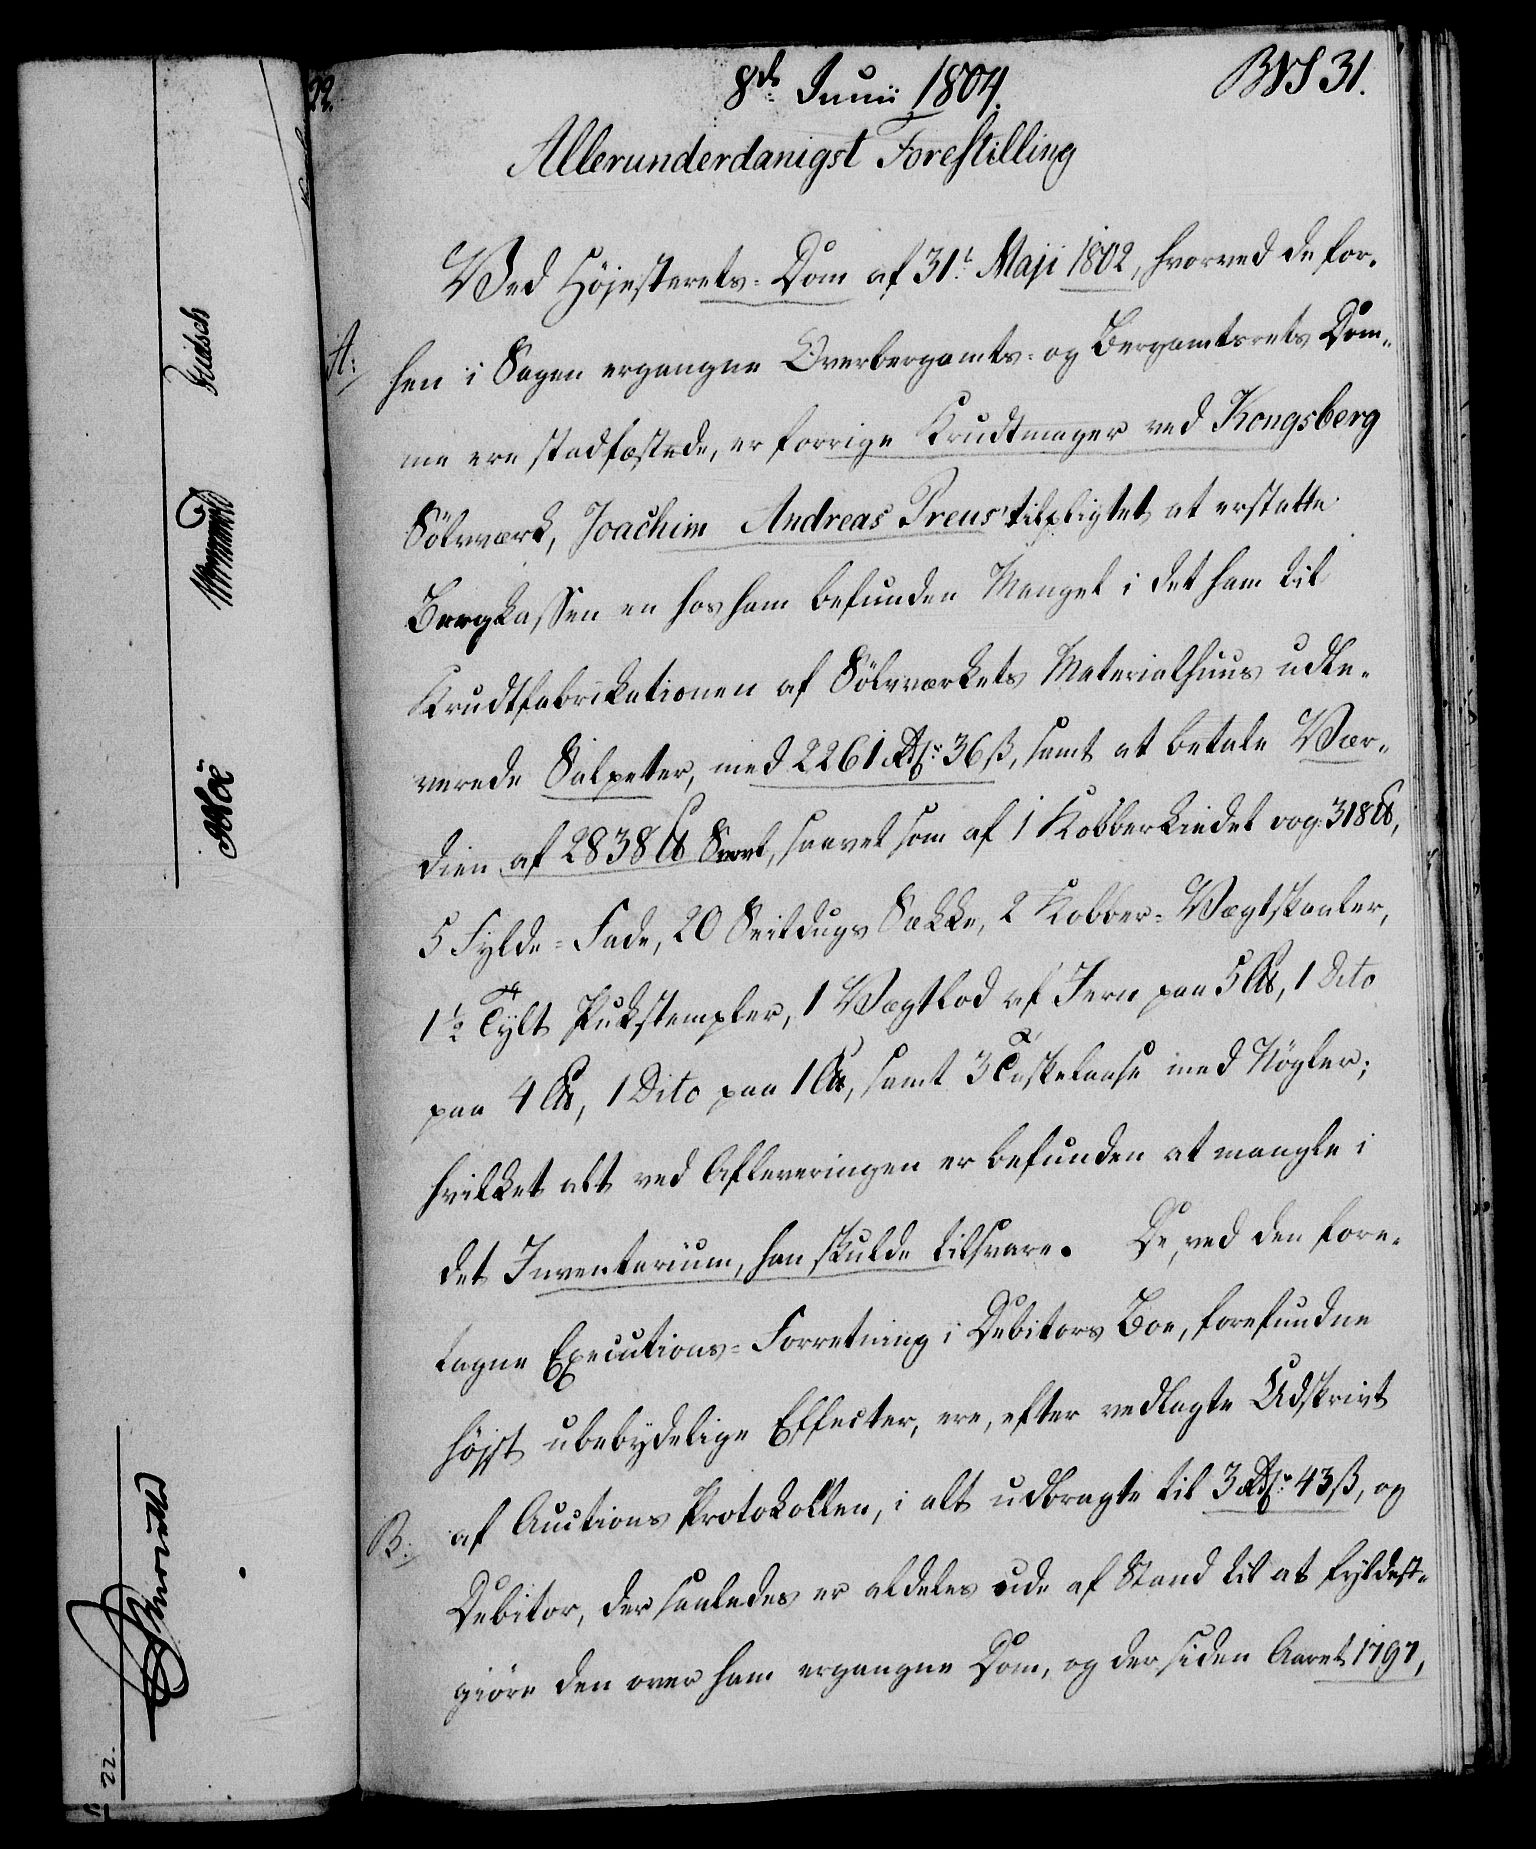 8de Junii 1804.
BVS 31.
22.
Allerunderdanigst Forestilling
Ved Höjesterets-Dom af 31t Maji 1802, hvorved de for-
A:
hen i Sagen ergangne Overbergamts- og Bergamtsrets Dom-
me ere stadfæstede, er forrige Krudtmager ved Kongsberg
Sölvværk, Joachim Andreas Preus tilpligtet at erstatte
Bergkassen en hos ham befunden Mangel i det ham til
Krudtfabrikationen af Sölvværkets Materialhuus udle-
verede Salpeter, med 2261 Rdr 36 ß, samt at betale Vær-
dien af 2838 ℔ Svovl, saavel som af 1 Kobberkiedel vog 318 ℔,
5 Fylde-Fade, 20 Seildugs Sække, 2 Kobber-Vægtskaaler,
1½ Tylt Pukstempler, 1 Vægtlod af Jern paa 5 ℔, 1 Dito
paa 4 ℔, 1 Dito paa 1 ℔, samt 3 Taskelaase med Nögler;
hvilket alt ved Afleveringen er befunden at mangle i
det Inventarium, han skulde tilsvare. De, ved den fore-
tagne Executions-Forretning i Debitors Boe, forefundne
höjst ubetydelige Effecter, ere, efter vedlagte Udskrivt
B:
af Auctions Protokollen, i alt udbragte til 3 Rdr 43 ß, og
Debitor, der saaledes er aldeles ude af Stand til at fyldest-
giöre den over ham ergangne Dom, og der siden Aaret 1797,
22.